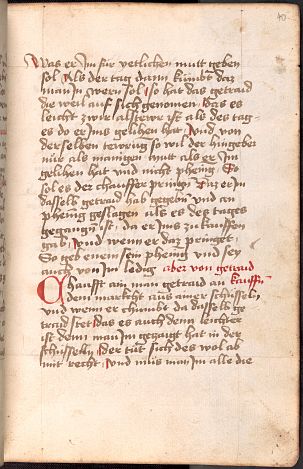 40
Was er Im für yetlichen mutt geben
sol Als der tag dann kumbt daz
man In wern sol So hat das getraid
die weil auf sich genomen Das es
leicht zwir als tewr ist als des tag
es do er Ins gelihen hat Und von
derselben tewrug so wil der hingeber
nur als manigen mutt als er Im
gelihen hat und nicht phenig So
sol es der chauffer pringen Daz er In
dasselb getraid hab gegebn und an
phenig geslagen als es des tages
gegangn ist da er Ins zu kauffen
gab Und wenn er daz pringet
So geb einem sein phenig und sey
auch von Im ledig aber von getraid
Chaufft ain man getraid an kauffn
dem markcht aus ainer schüsseln
und wenn er chumbt da dasselb ge
traid stet Das es auch denn leichter
ist denn man Im gezaigt hat in der
schüsseln Der tüt sich des wol ab
mit recht Und mus man Im alle die